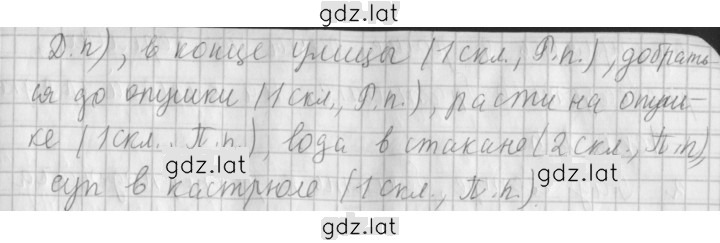 gdz.lat
Д.п), в конце улицы (1 скл., Р.п.), добрать-
ся до опушки (1 скл., Р.п.), расти на опуш-
ке (1 скл., П.п.), вода в стакане (2 скл., П.п),
gdz.lat
gdz.lat
суп в кастрюле (1 скл., П.п.)
gdz.lat